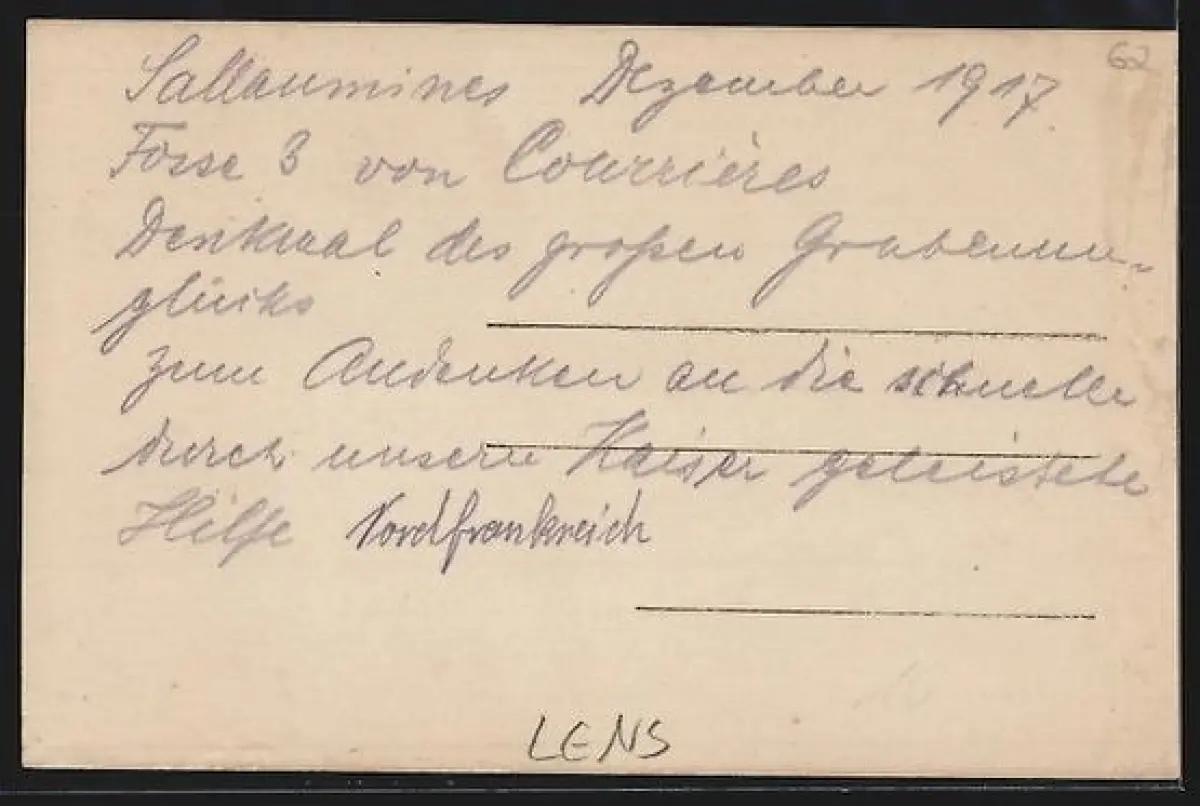 62
Sallaumines Dezember 1917
Fosse 3 von Courrières
Denkmal des großen Grubenun-
glücks
zum Andenken an die schnelle
durch unsern Kaiser geleistete
Hilfe Nordfrankreich
LENS